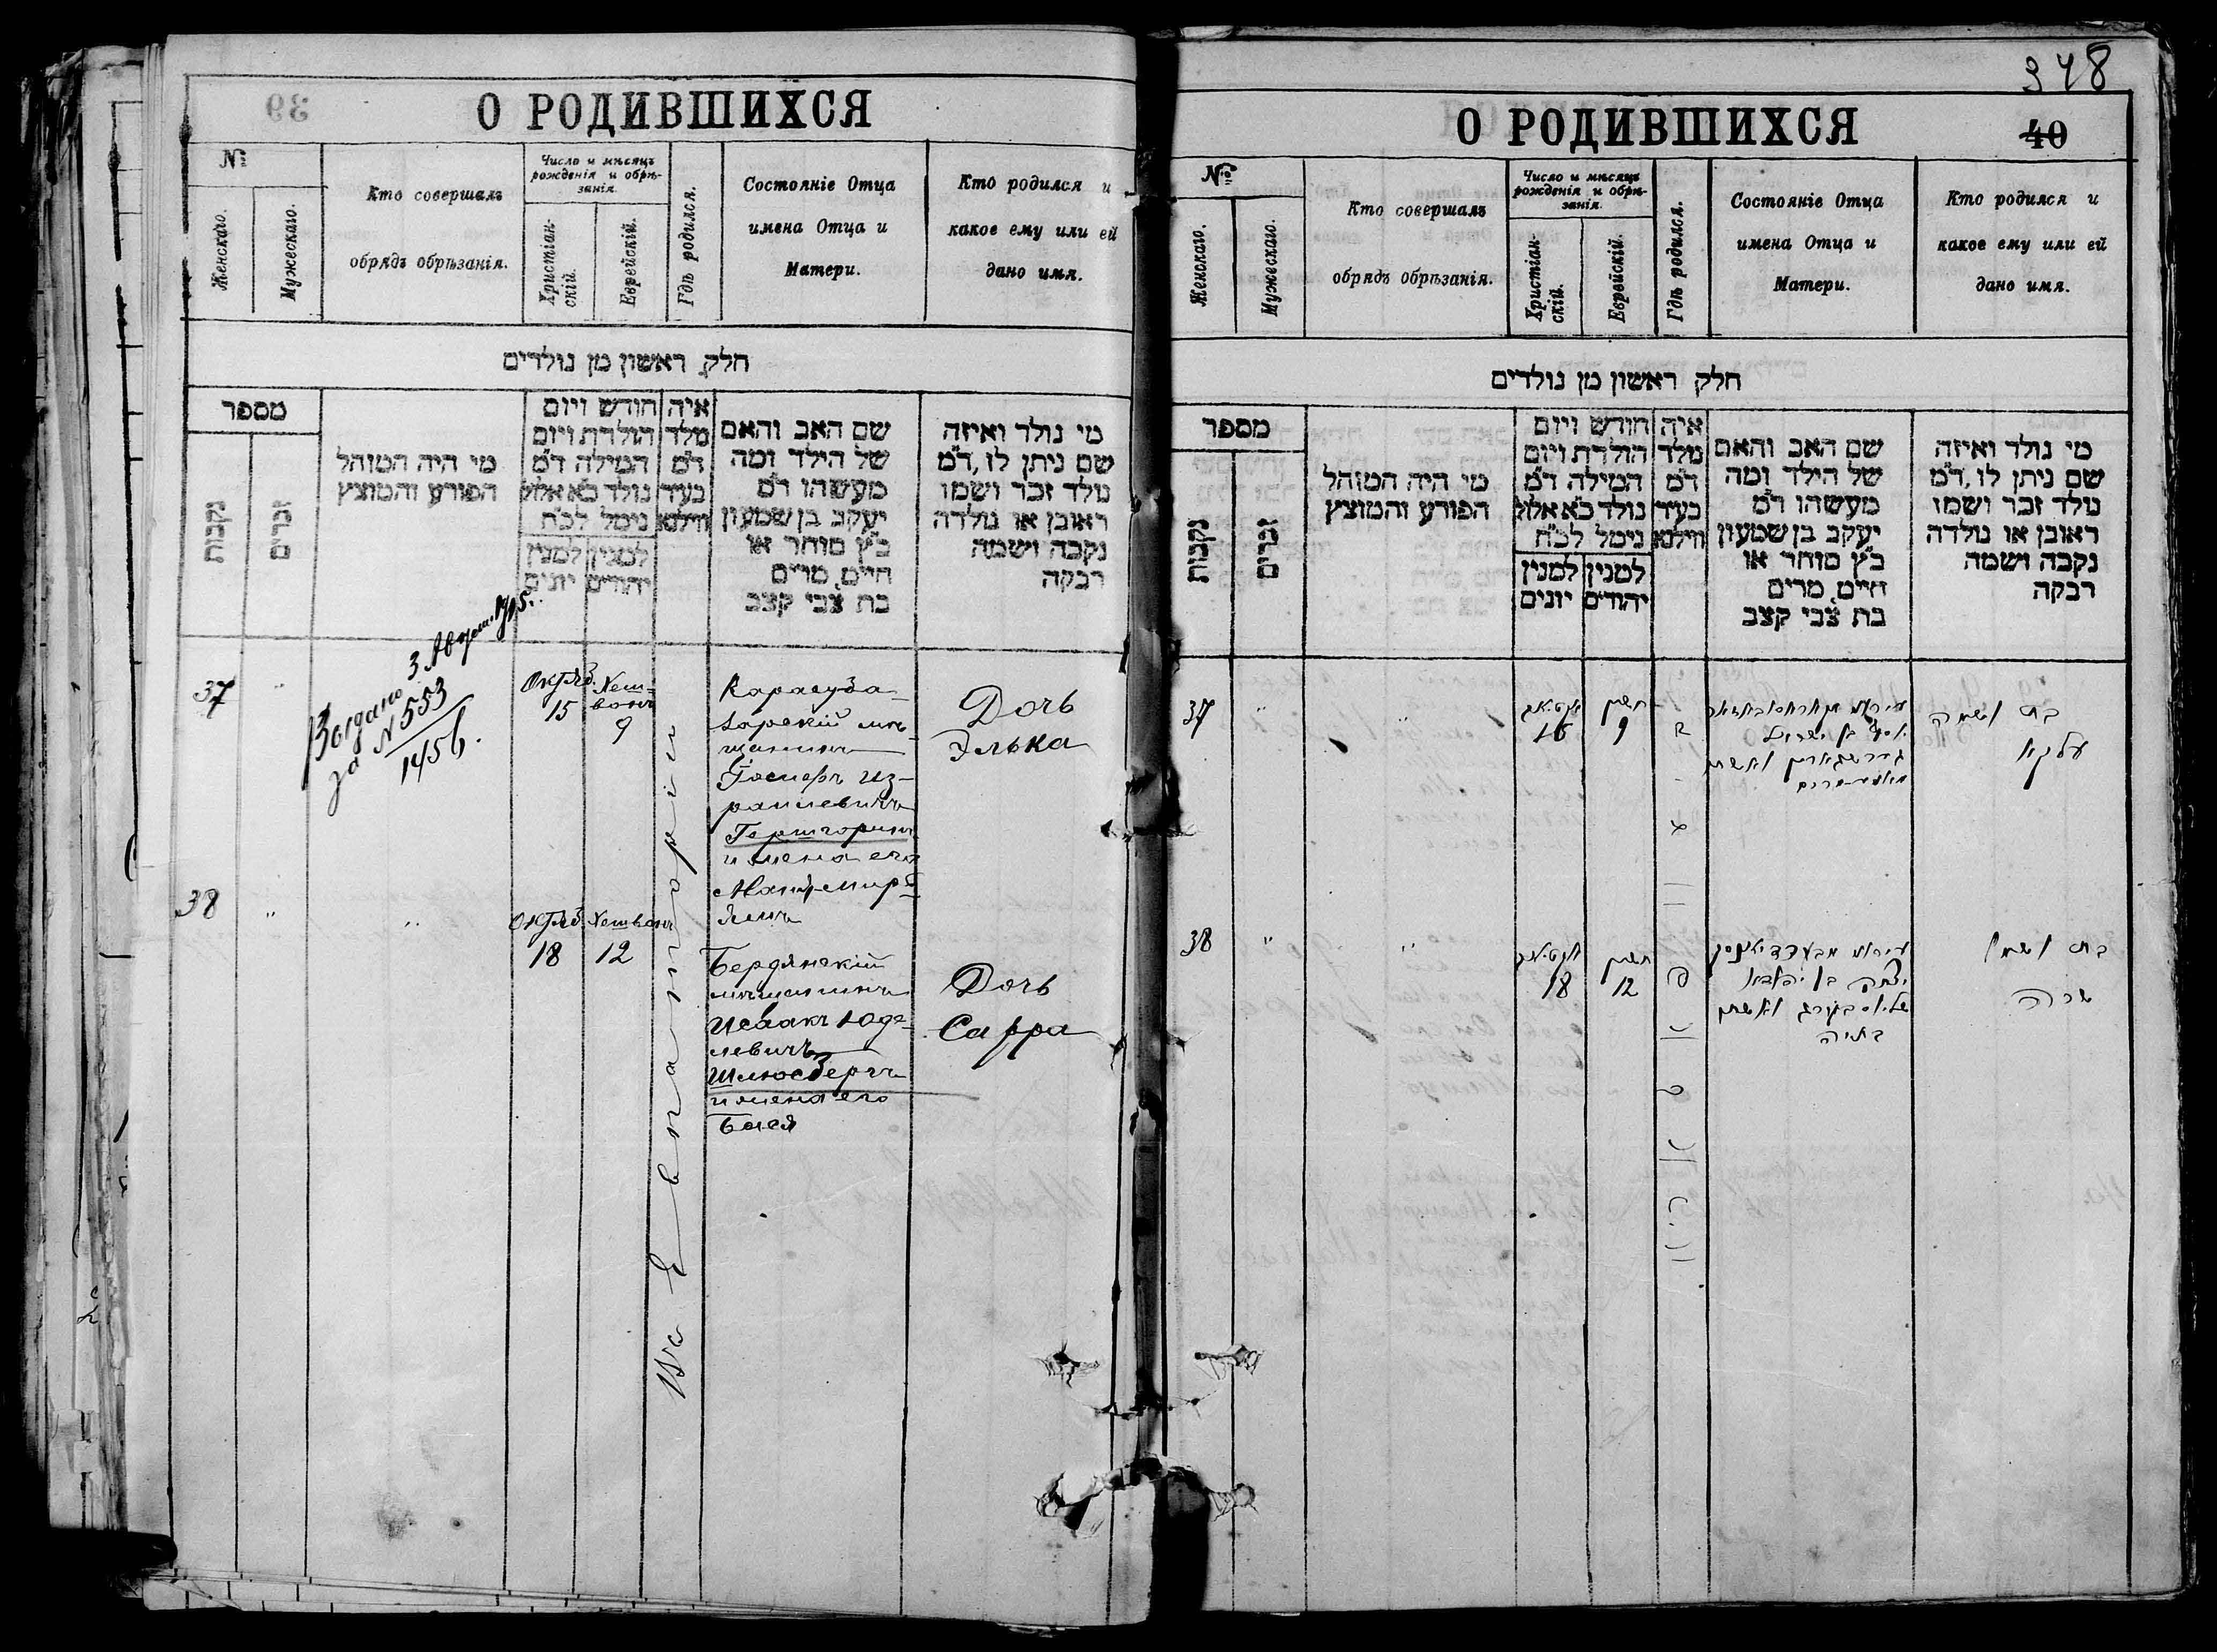 39
О РОДИВШИХСЯ
№
Женскаго.
Мужескаго.
Кто совершалъ
обрядъ обрѣзанія.
Число и мѣсяцъ
рожденія и обрѣ-
занія.
Христіан-
скій.
Еврейскій.
Гдѣ родился.
Состояніе Отца
имена Отца и
Матери.
Кто родился и
какое ему или ей
дано имя.
חלק ראשון מן נולדים
מספר
נקבות
זכרים
מי היה המוהל
הפורע והמוצץ
חודש ויום
הולדת ויום
המילה ד"מ
נולד כ"א אלול
נימל לכ"ח
למנין למנין
יהודים יונים
איה
מלד
ד"מ
בעיר
ווילנא
שם האב והאם
של הילד ומה
מעשהו ד"מ
יעקב בן שמעון
כ"ץ סוחר או
חיים, מרים
בת צבי קצב
מי נולד ואיזה
שם ניתן לו, ד"מ
נולד זכר ושמו
ראובן או נולדה
נקבה ושמה
רבקה
37
"
3
за № 553
1456.
Октяб.
15
Хеш-
вонъ
9
Карасуба-
зарскій мѣ-
щанинъ
Іосифъ Из-
раилевичъ
Гершгоринъ
и жена его
Дочь
Элька
38
"
"
Октяб.
18
Хешвонъ
12
Бердянскій
мѣщанинъ
Исаакъ Юде-
левичъ
Шлюсбергъ
и жена его
Бася
Дочь
Сарра
Евпаторіи
348
О РОДИВШИХСЯ
40
№
Женскаго.
Мужескаго.
Кто совершалъ
обрядъ обрѣзанія.
Число и мѣсяцъ
рожденія и обрѣ-
занія.
Христіан-
скій.
Еврейскій.
Гдѣ родился.
Состояніе Отца
имена Отца и
Матери.
Кто родился и
какое ему или ей
дано имя.
חלק ראשון מן נולדים
מספר
נקבות
זכרים
מי היה המוהל
הפורע והמוצץ
חודש ויום
הולדת ויום
המילה ד"מ
נולד כ"א אלול
נימל לכ"ח
למנין למנין
יהודים יונים
איה
מלד
ד"מ
בעיר
ווילנא
שם האב והאם
של הילד ומה
מעשהו ד"מ
יעקב בן שמעון
כ"ץ סוחר או
חיים, מרים
בת צבי קצב
מי נולד ואיזה
שם ניתן לו, ד"מ
נולד זכר ושמו
ראובן או נולדה
נקבה ושמה
רבקה
37
"
"
15
חשון
9
בן ישראל
ואשתו
בת ושמה
עלקא
38
"
"
18
חשון
12
יצחק בן
ואשתו
בת
שרה